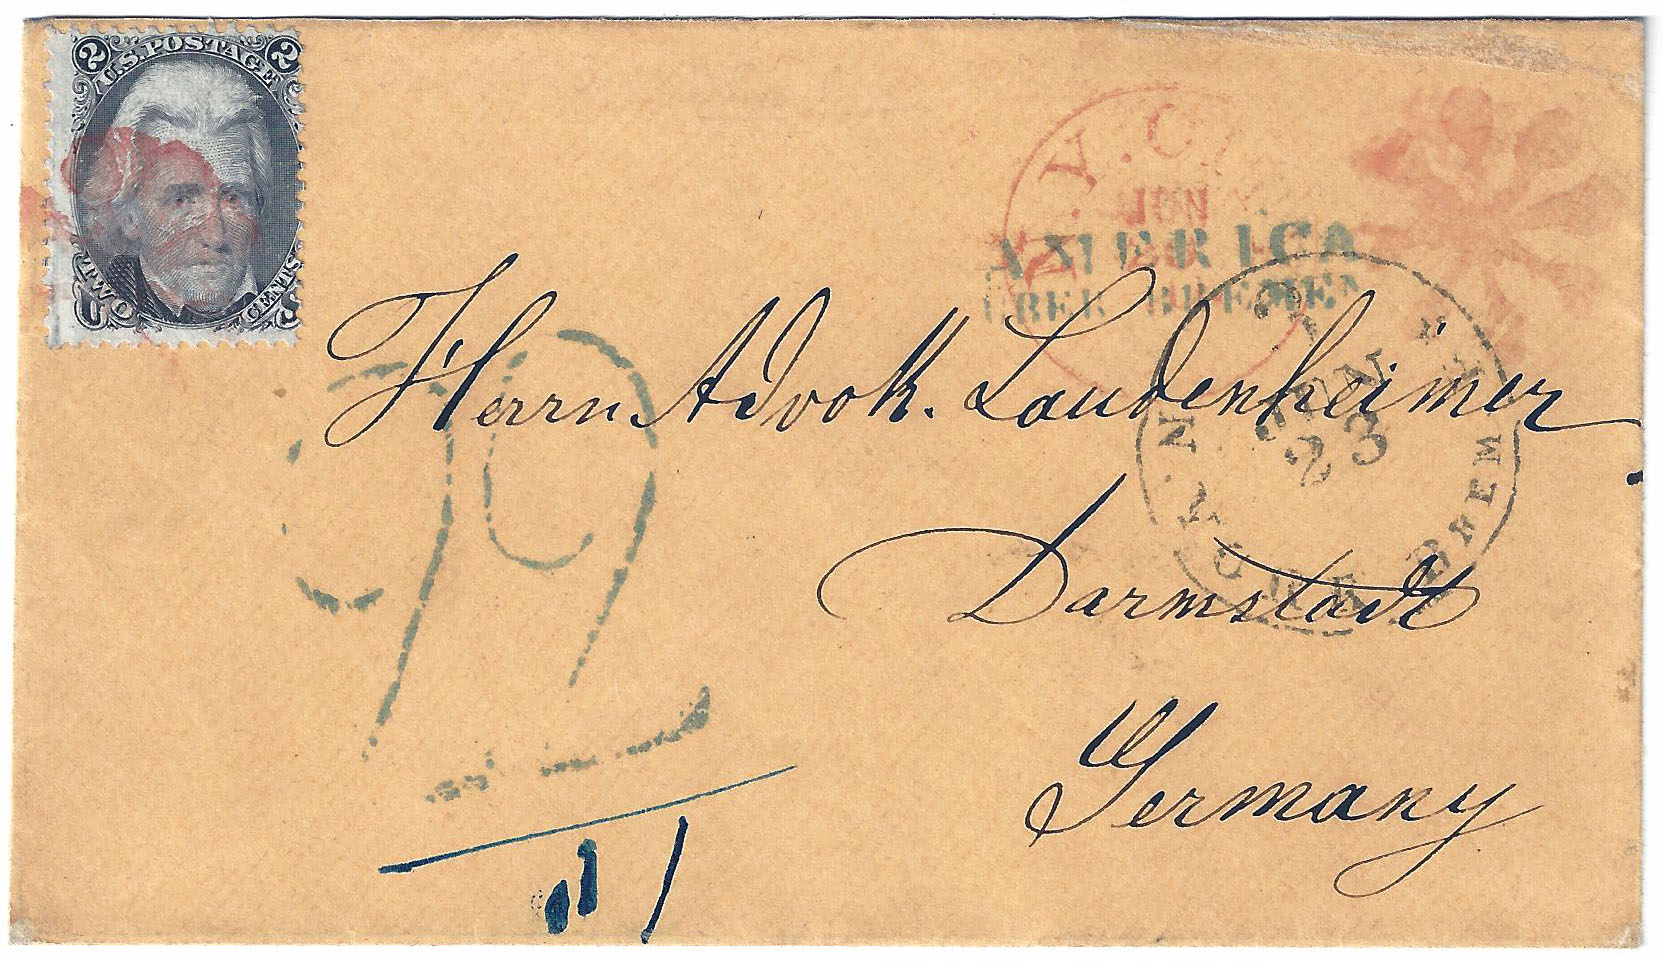 2 U.S. POSTAGE 2
TWO CENTS
N.Y.
JUN
AMERICA
ÜBER BREMEN
JUN
23
BREM
Herrn Advok. Laudenheimer
Darmstadt
Germany